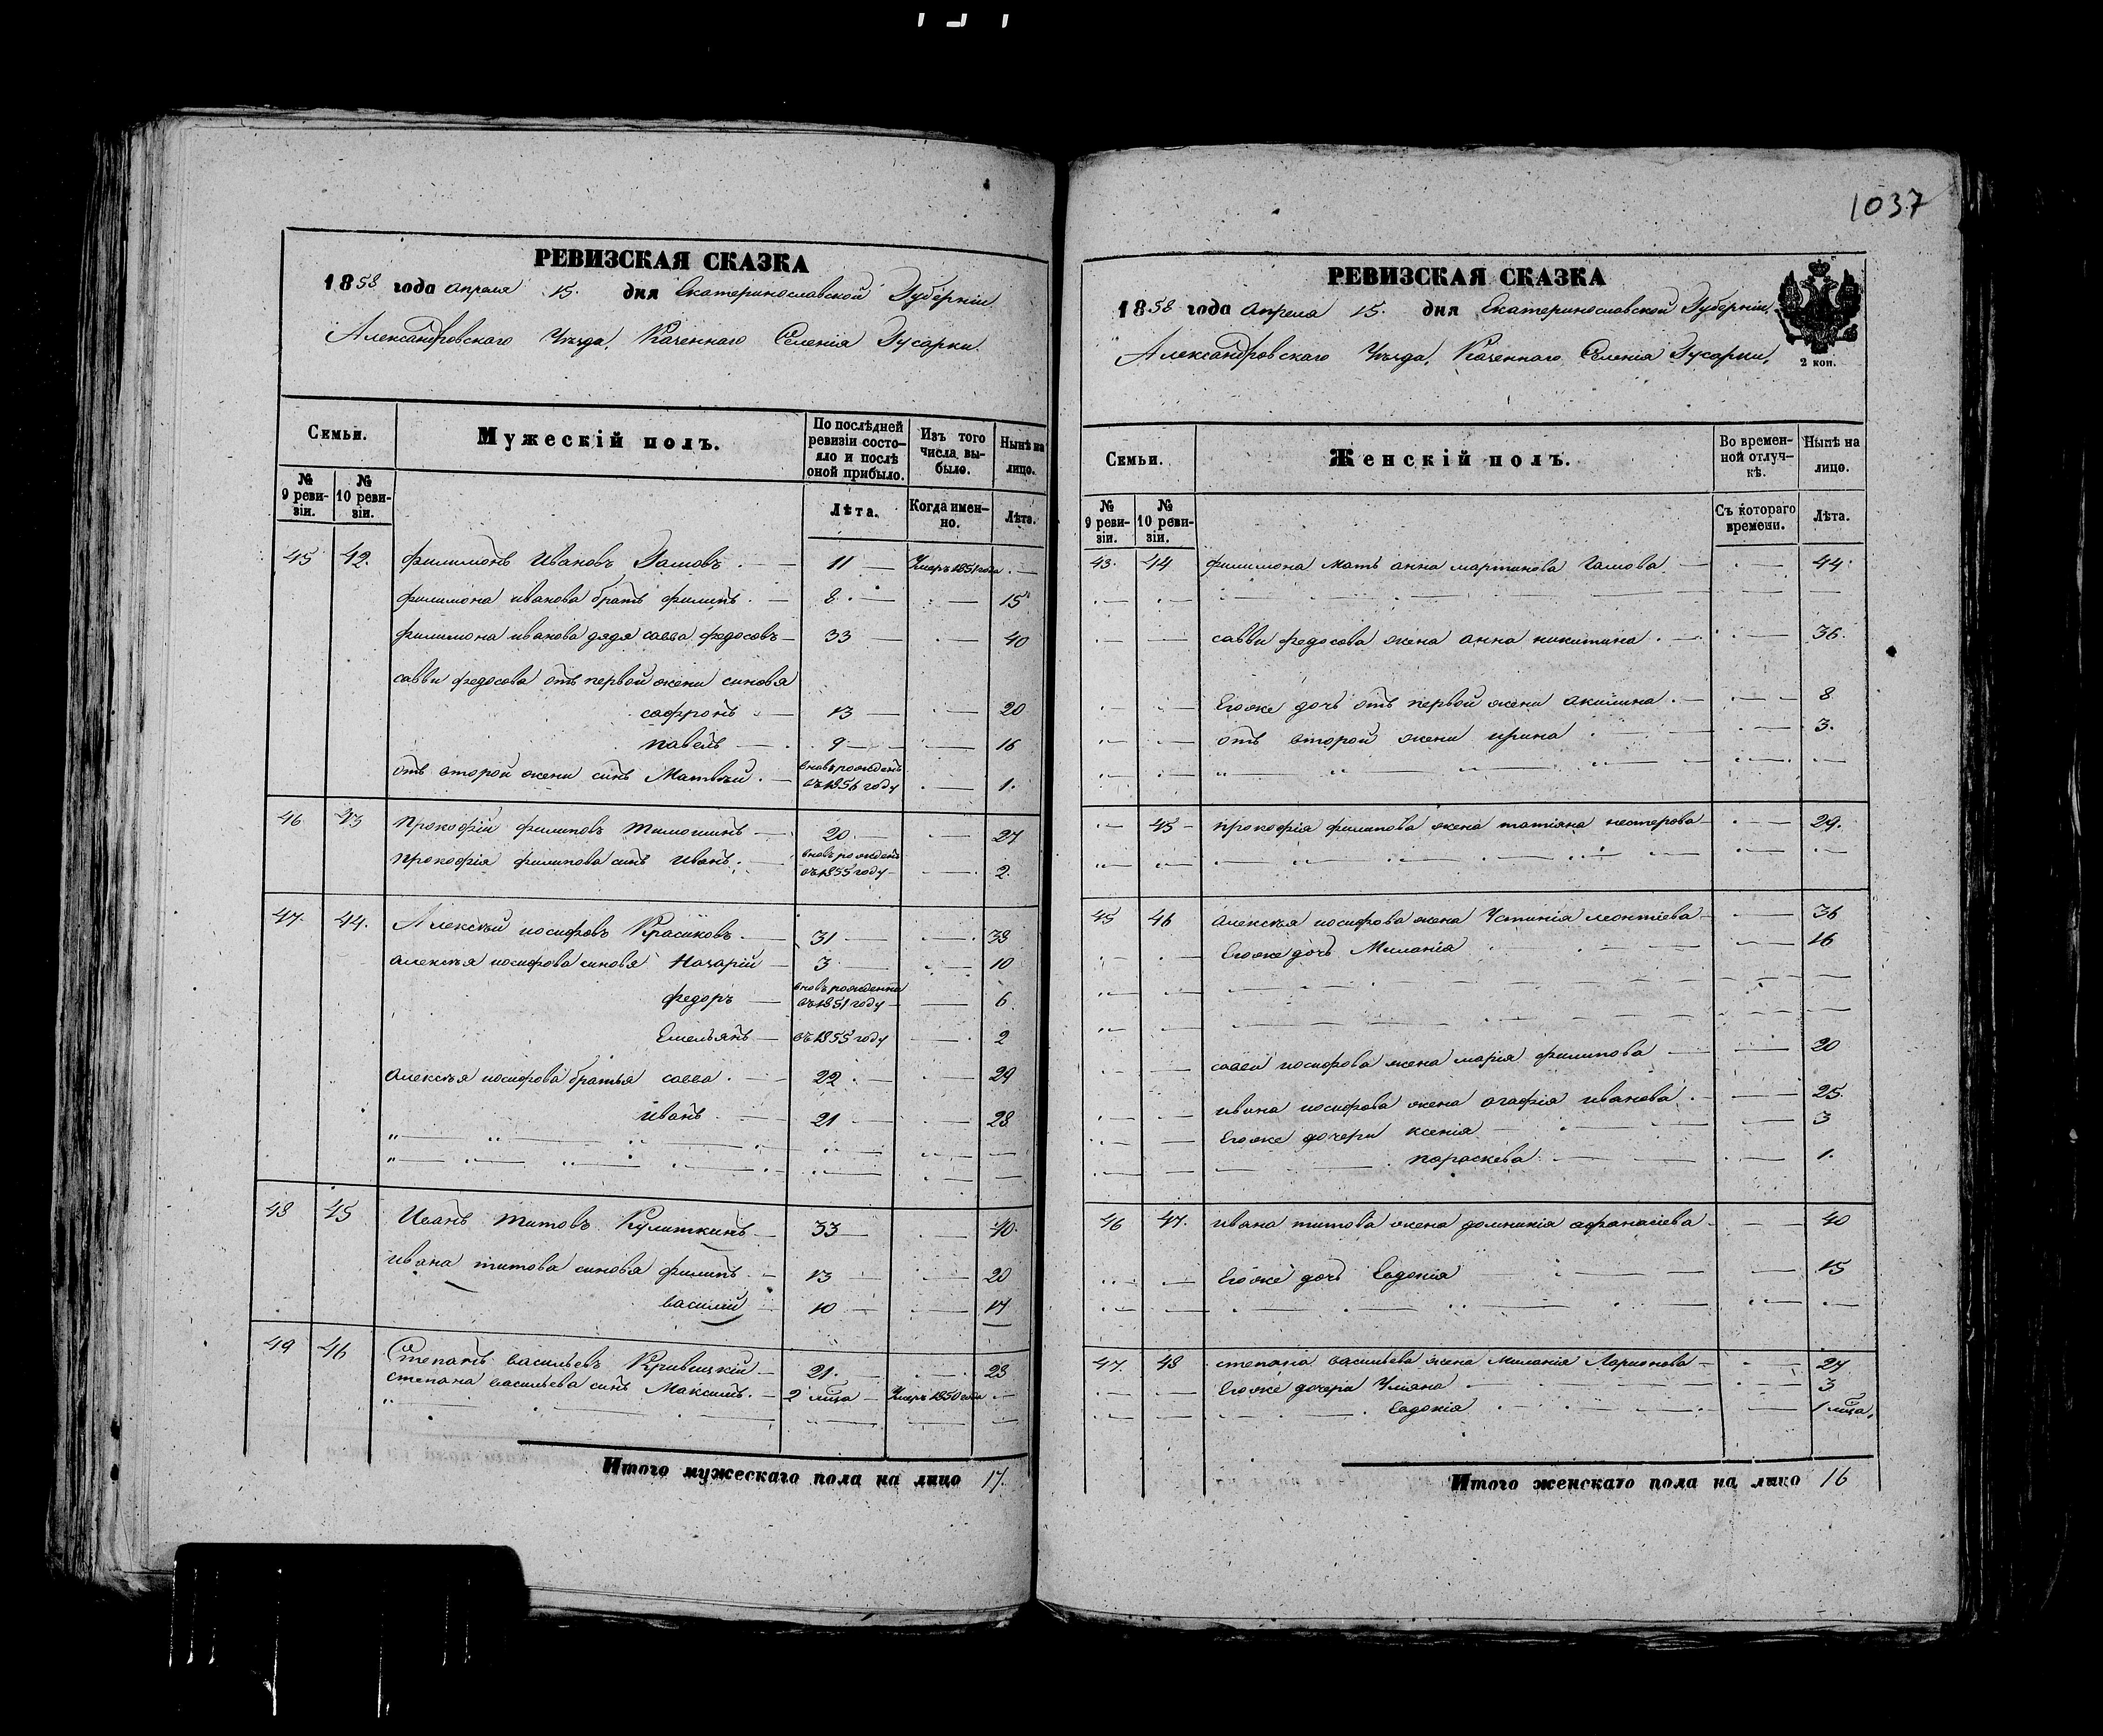 1037
РЕВИЗСКАЯ СКАЗКА
1858 года Апреля 15. дня Екатеринославской Губерніи
Александровскаго Уѣзда, Казеннаго Селенія Гусарки.
Семьи.
Мужескій полъ.
По послѣдней ревизіи состояло и послѣ оной прибыло.
Изъ того числа выбыло.
Нынѣ на лицо.
№ 9 ревизіи.
№ 10 ревизіи.
Лѣта.
Когда именно.
Лѣта.
45 42. Филимонъ Ивановъ Гамовъ 11 Умеръ 1851 года
Филимона Иванова братъ Филипъ 8 15
Филимона Иванова дядя Савва Федосовъ 33 40
Савви Федосова отъ первой жени синовя
Сафронъ 13 20
Павелъ 9 16
отъ второй жени синъ Матвѣй вновь рожденъ въ 1856 году 1.
46 43 Прокофій Филиповъ Тимошинъ 20 27
Прокофія Филипова синъ Иванъ вновь рожденъ въ 1855 году 2.
47. 44. Алексѣй Иосифовъ Красиковъ 31 38
Алексѣя Иосифова синовя Назарій 3 10
Федоръ вновь рожденни въ 1851 году 6
Емельянъ въ 1855 году 2
Алексѣя Иосифова братья Савва 22 29
Иванъ 21 28
48 45 Иванъ Титовъ Кулиткинъ 33 40.
Ивана Титова синовя Филипъ 13 20
Василий 10 17
49 46 Степанъ Васильевъ Кривицкій 21. 28
Степана Васильева синъ Максимъ 2 мца Умеръ 1850 года
Итого мужескаго пола на лицо 17.
РЕВИЗСКАЯ СКАЗКА
1858 года Апреля 15. дня Екатеринославской Губерніи,
Александровскаго Уѣзда, Казеннаго Селенія Гусарки,
2 коп.
Семьи.
Женскій полъ.
Во временной отлучкѣ.
Нынѣ на лицо.
№ 9 ревизіи.
№ 10 ревизіи.
Съ котораго времени.
Лѣта.
43. 44 Филимона мать Анна Мартинова Гамова 44.
Савви Федосова жена Анна Никитина 36.
Его же дочь отъ первой жени Акилина 8
отъ второй жени Ирина 3.
45 Прокофія Филипова жена Татіяна Нестерова 29.
45 46 Алексѣя Иосифова жена Устинія Леонтіева 36
Его же дочь Миланія 16
Савви Иосифова жена Марія Филипова 20
Ивана Иосифова жена Агафія Иванова 25.
Его же дочери Ксенія 3
Параскева 1.
46 47. Ивана Титова жена Домникія Афанасіева 40
Его же дочь Евдокія 15
47. 48 Степана Васильева жена Миланія Ларионова 27
Его же дочери Уліяна 3
Евдокія 1 мца,
Итого женскаго пола на лицо 16